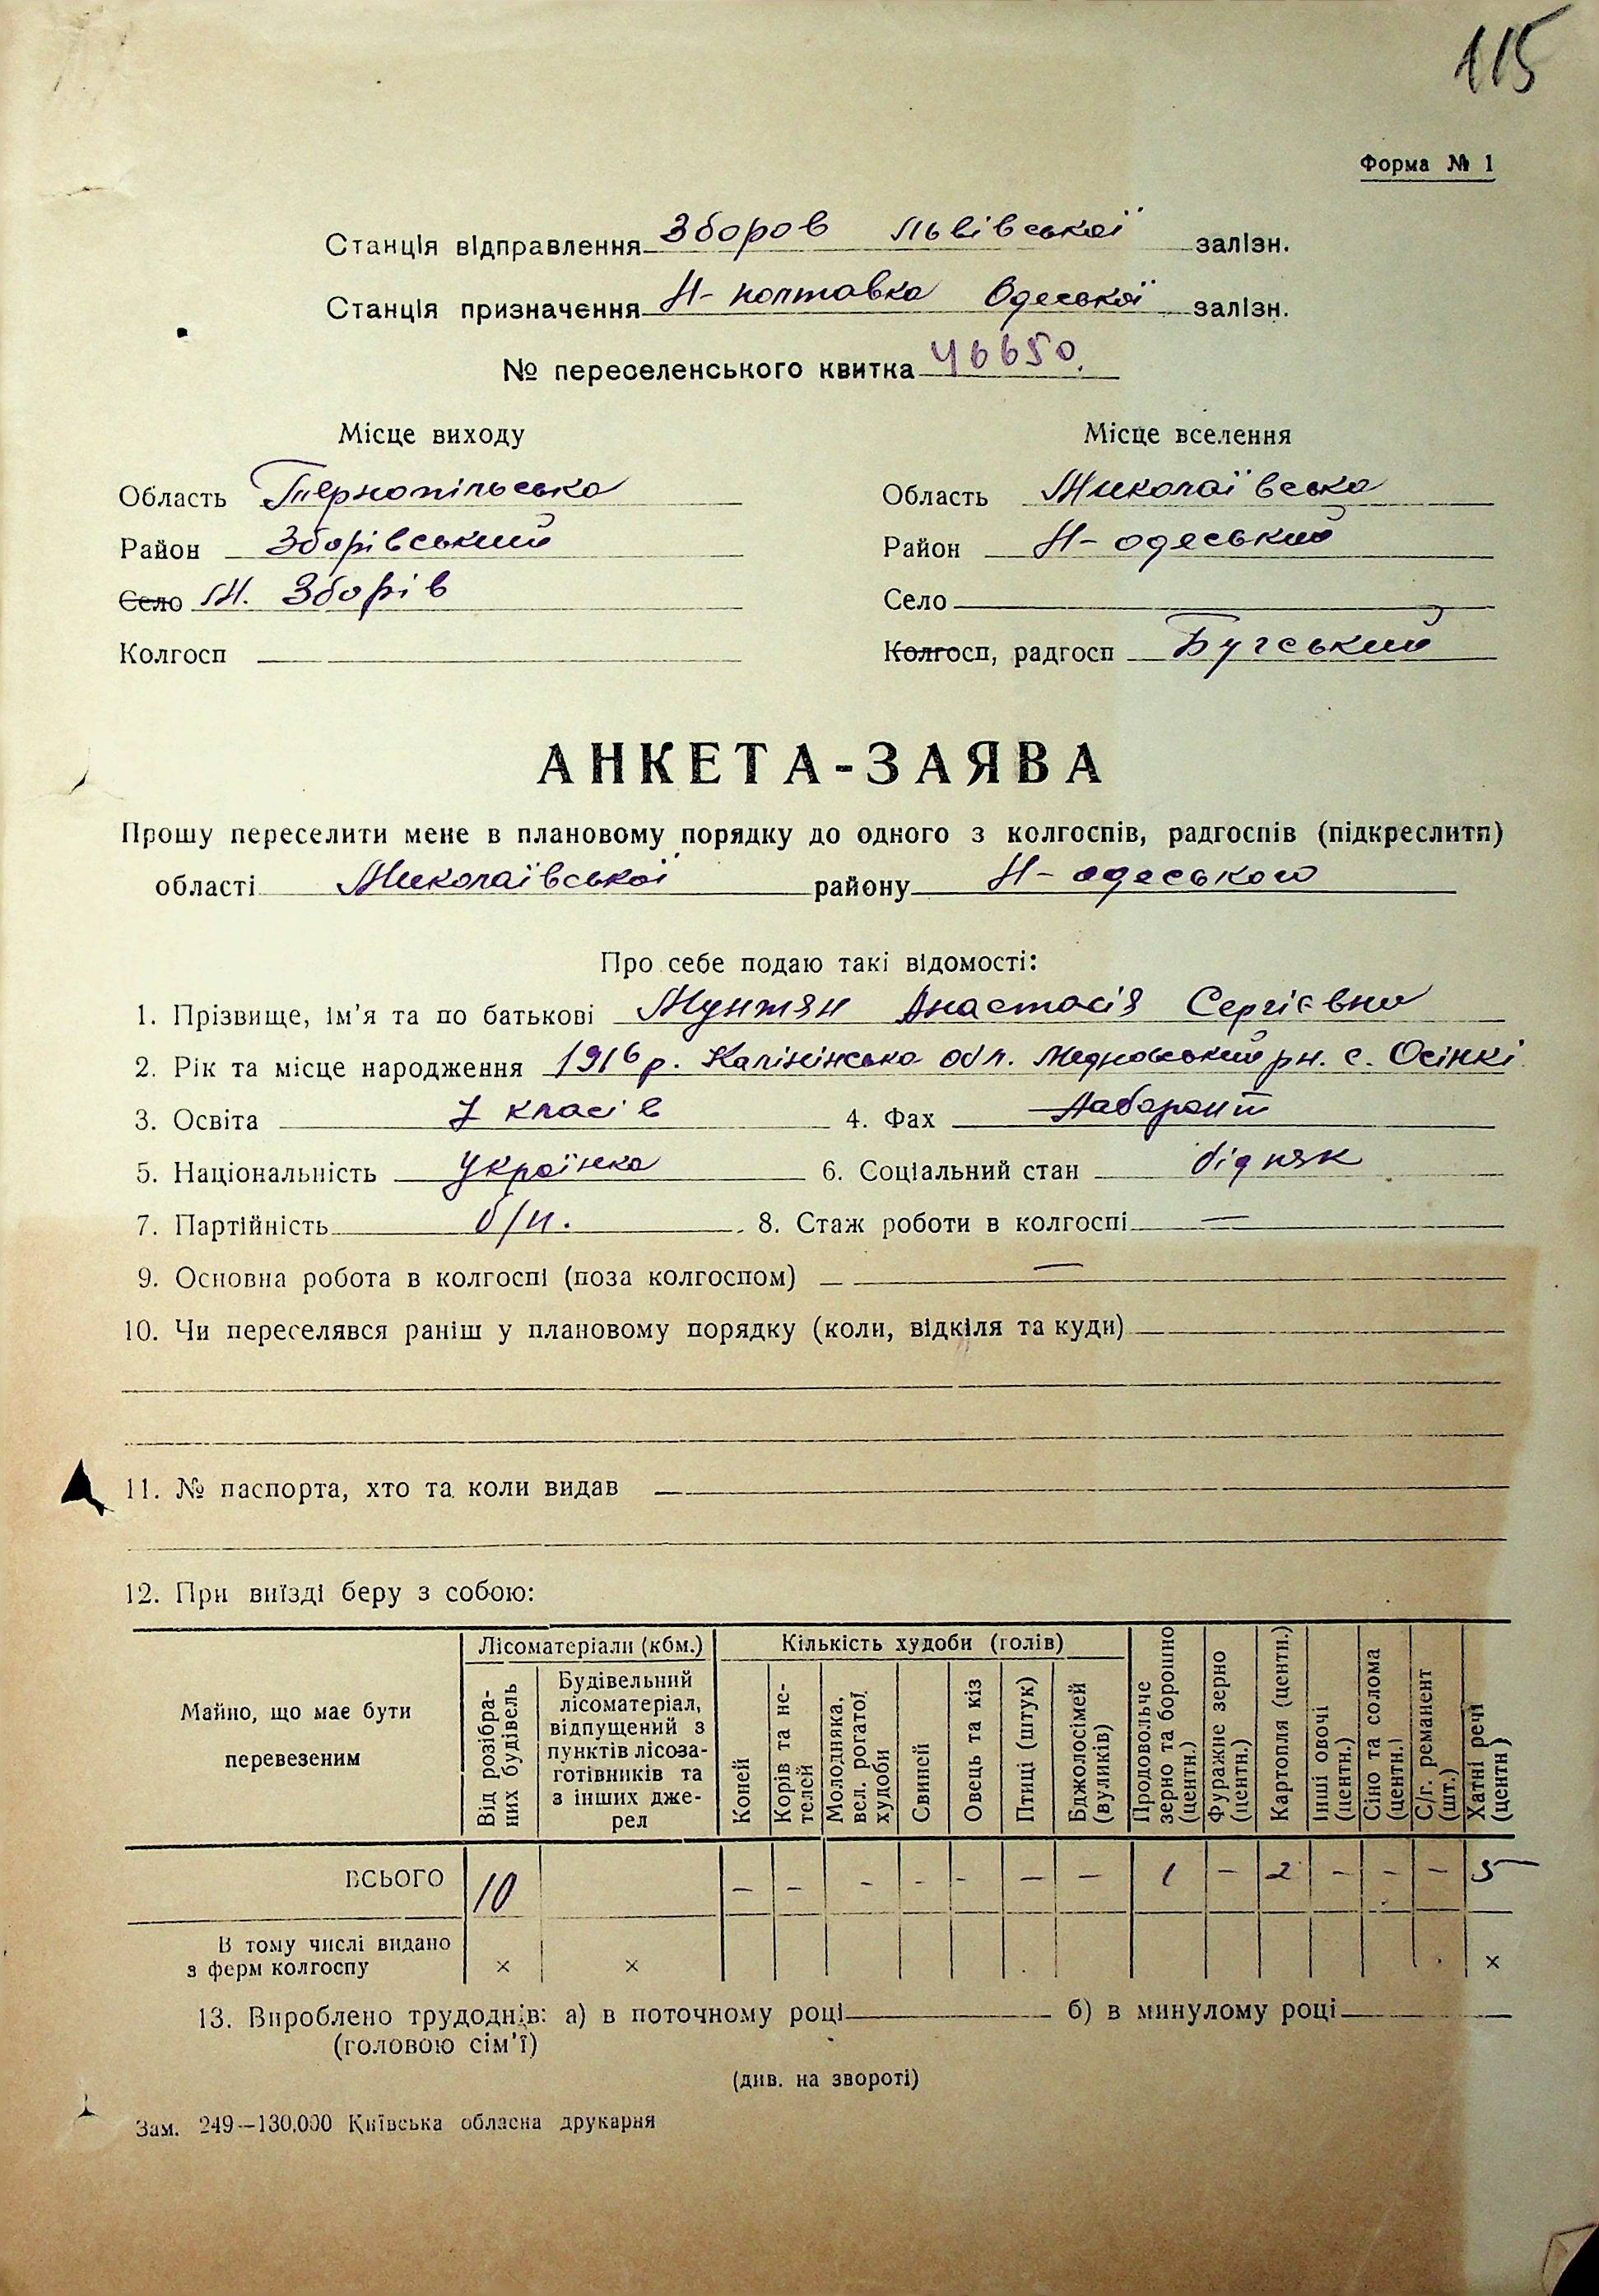 115
Форма № 1
Станція відправлення Зборов Львівської залізн.
Станція призначення Н-полтавка Одеської залізн.
№ переселенського квитка 46650.
Місце виходу Місце вселення
Область Тернопільська Область Миколаївська
Район Зборівський Район Н-одеський
Село М. Зборів Село
Колгосп — Колгосп, радгосп Бугський
АНКЕТА-ЗАЯВА
Прошу переселити мене в плановому порядку до одного з колгоспів, радгоспів (підкреслити)
області Миколаївської району Н-одеського
Про себе подаю такі відомості:
1. Прізвище, ім'я та по батькові Мунтян Анастасія Сергієвна
2. Рік та місце народження 1916 р. Калінінська обл. Медновський рн. с. Осінкі
3. Освіта 7 класів 4. Фах Лаборант
5. Національність Українка 6. Соціальний стан бідняк
7. Партійність б/п. 8. Стаж роботи в колгоспі —
9. Основна робота в колгоспі (поза колгоспом) —
10. Чи переселявся раніш у плановому порядку (коли, відкіля та куди)
11. № паспорта, хто та коли видав
12. При виїзді беру з собою:
Майно, що має бути перевезеним
Лісоматеріали (кбм.)
Від розібраних будівель
Будівельний лісоматеріал, відпущений з пунктів лісозаготівників та з інших джерел
Кількість худоби (голів)
Коней
Корів та нетелей
Молодняка, вел. рогатої худоби
Свиней
Овець та кіз
Птиці (штук)
Бджолосімей (вуликів)
Продовольче зерно та борошно (центн.)
Фуражне зерно (центн.)
Картопля (центн.)
Інші овочі (центн.)
Сіно та солома (центн.)
С/г. реманент (шт.)
Хатні речі (центн)
ВСЬОГО 10 - - - - - — — 1 - 2 - - - 5
В тому числі видано
з ферм колгоспу × × ×
13. Вироблено трудоднів: а) в поточному році б) в минулому році
(головою сім'ї)
(див. на звороті)
Зам. 249—130.000 Київська обласна друкарня